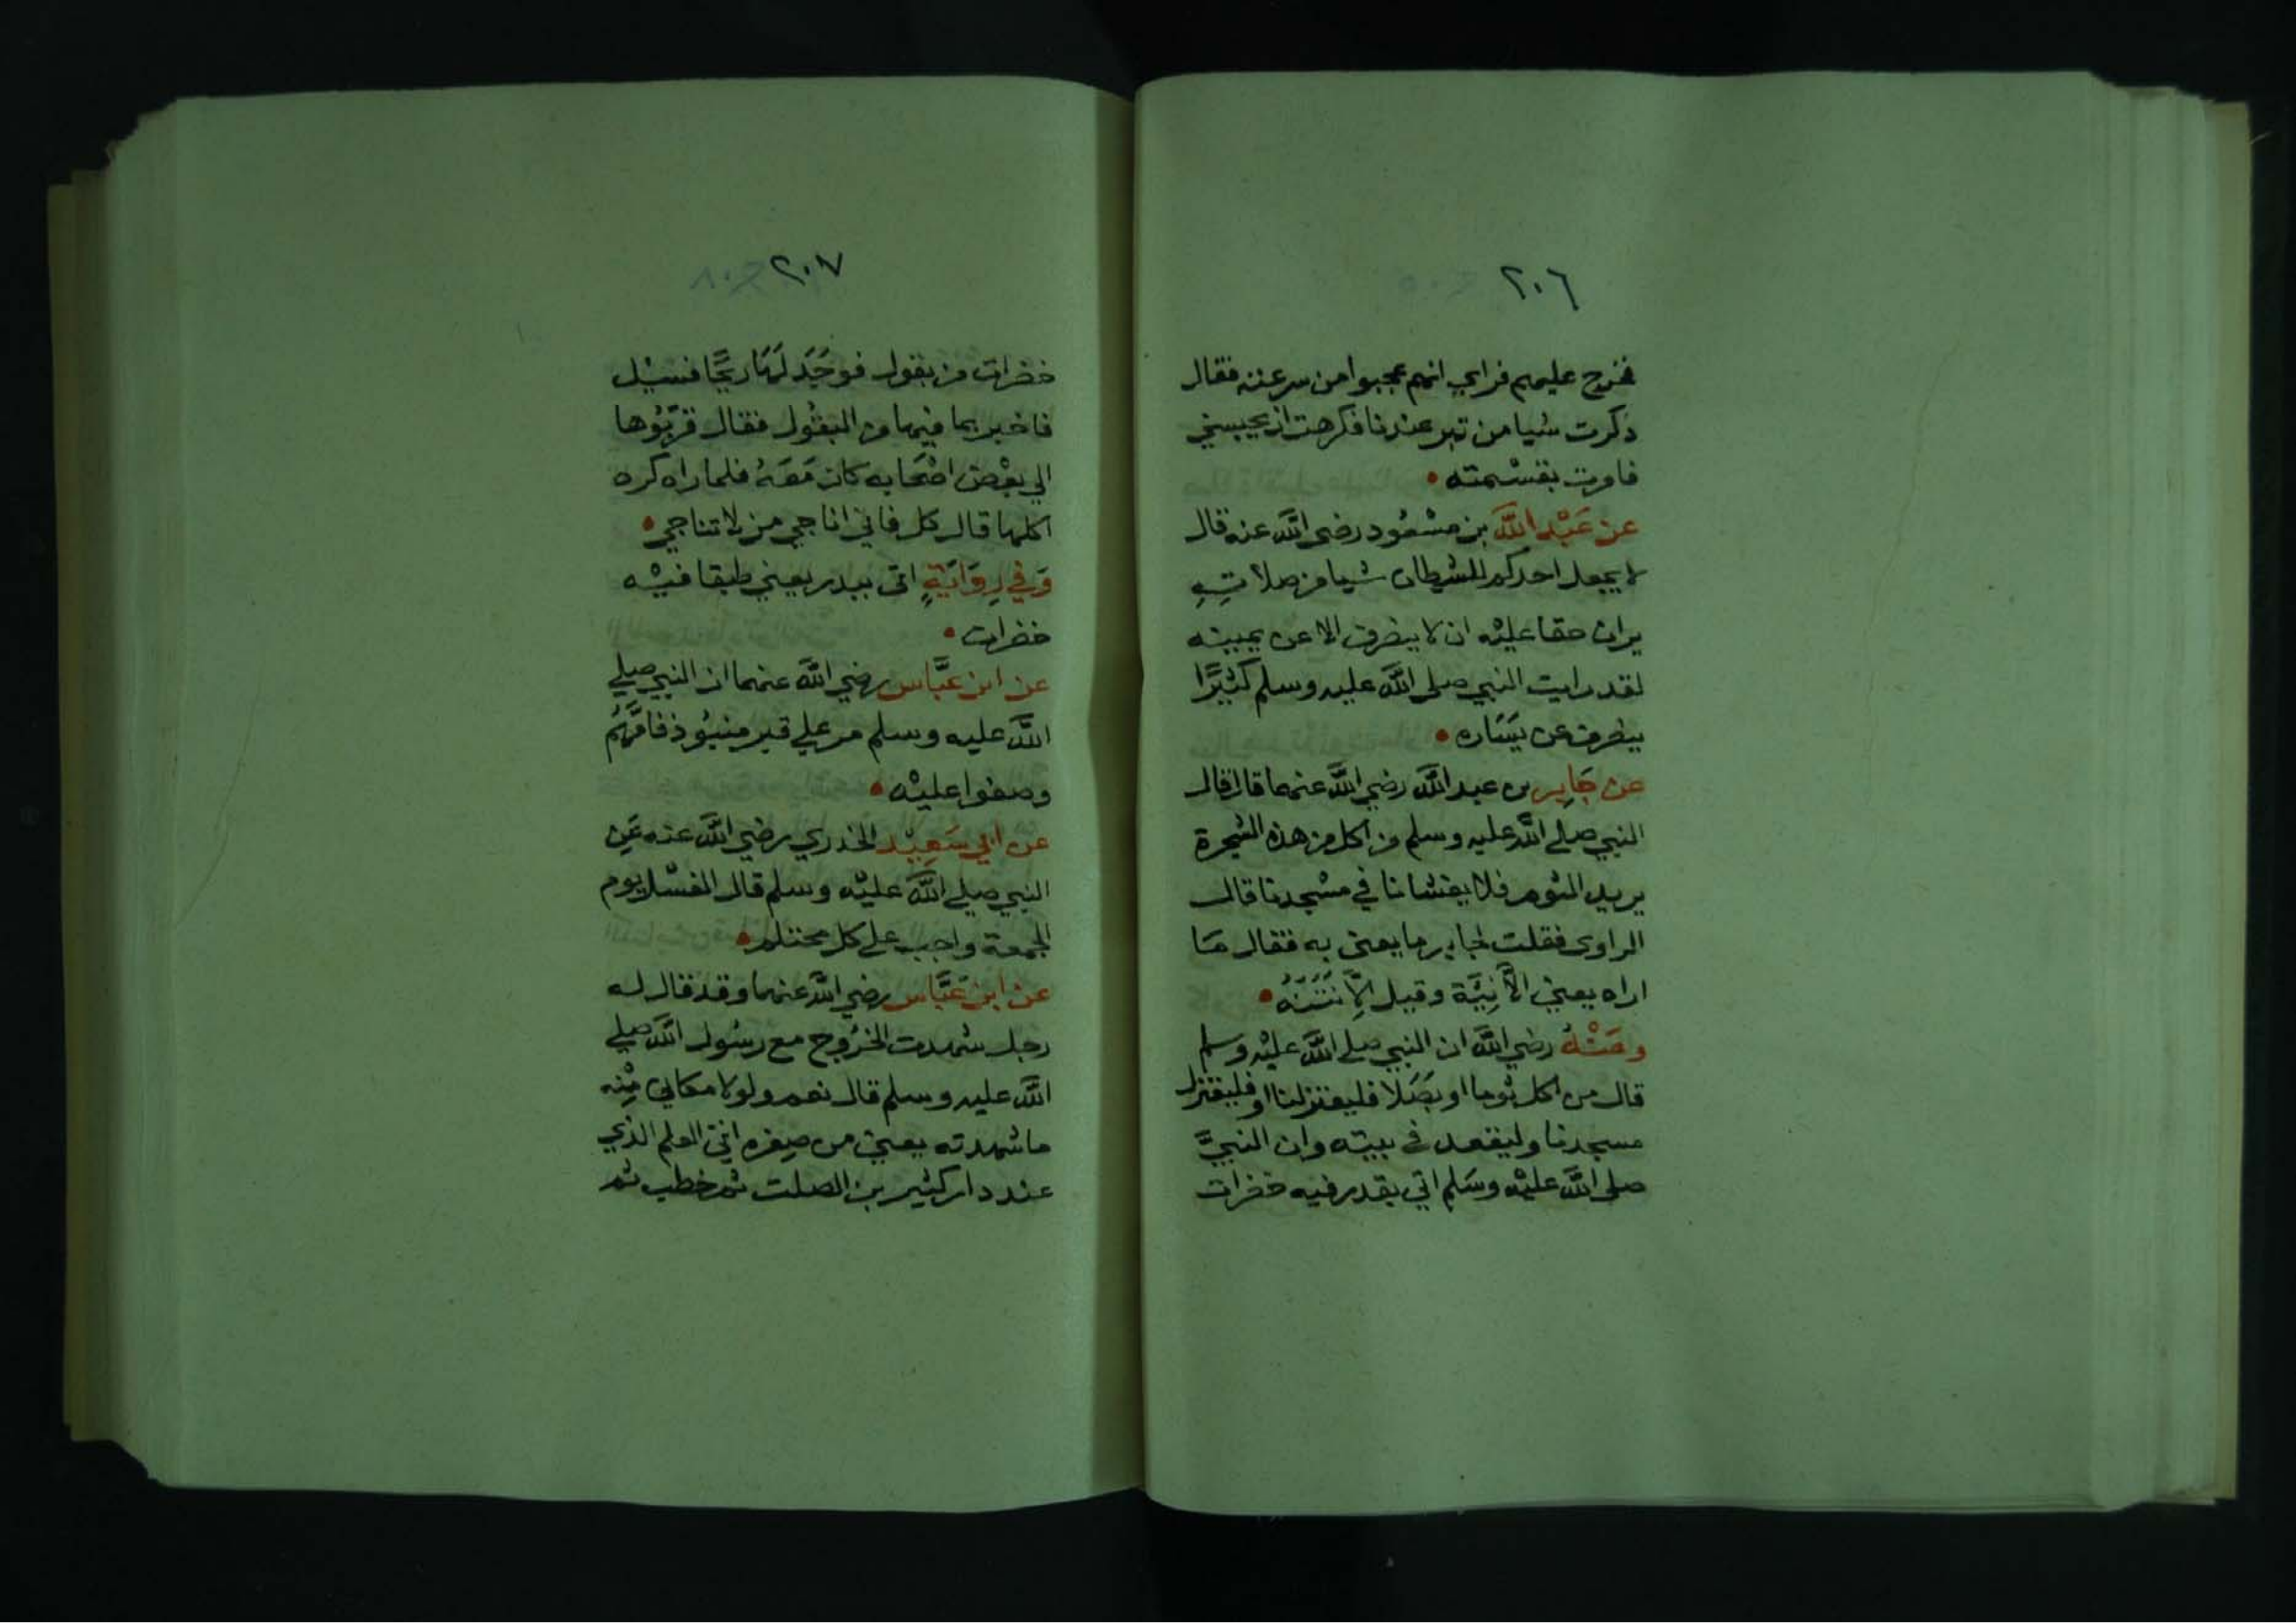 ٢٠٦
فخرج عليهم فراي انهم عجبوا من سرعته فقال
ذكرت شيا من تبر عندنا فكرهت ان يحبسني
فامرت بقسْمته
عن عَبْد اللَّه بن مسْعُود رضي اللَّه عنه قال
لا يجعل احدكم للشيطان شيا من صلاتِهِ
يران حقا عليْه ان لا ينصرف الا عن يمينه
لقد رايت النبي صلى اللَّه عليه وسلم كثيْرًا
ينصرف عن يَسَاره
عن جَابِر بن عبد اللَّه رضي اللَّه عنهما قال قال
النبي صلي اللَّه عليه وسلم من اكل من هذه الشجرة
يريد الثوم فلا يغشانا في مسْجدنا قال
الراوى فقلت لجابر ما يعني به فقال مَا
اراه يعني الاَّ نِيَّهُ وقيل الاَّ نَتَنَهُ
وعَنْهُ رضي اللَّه ان النبي صلي اللَّه عليْه وسلم
قال من اكل ثوما او بصَلا فليعتزلنا او فليعتزل
مسجدنا وليقعد في بيته وان النبيَّ
صلى اللَّه عليْه وسَلم اتي بقدر فيه خضرات
٢٠٧
خضرات من بقول فوجَدَ لَهَا ريْحًا فسَيْل
فاخبر بما فيها من البقُول فقال قرّبُوها
الي بعْض اصْحَابه كان مَعَهُ فلما راه كره
اكلها قال كل فاني اناجي من لا تناجي
وَفي رِوَايَةٍ اتى ببدر يعني طبقا فيْه
خضرات
عن ابن عبَّاس رضي اللَّه عنهما ان النبي صلي
اللَّه عليه وسلم مر علي قبر منبُوذ فامَّهُم
وصفوا عليْه
عن ابي سَعِيْد الخدري رضي اللَّه عنه عَنِ
النبي صلي اللَّه عليْه وسلم قال الغسْل يوم
الجمعة واجب علي كل محتلم
عن ابن عبَّاس رضي اللَّه عنهما وقد قال له
رجل شهدت الخرُوج مع رسُول اللَّه صلي
اللَّه عليه وسلم قال نعم ولولا مكاني مِنْه
ما شهدته يعني من صِغره اتى العلم الذي
عند دار كثير بن الصلت ثم خطب ثم